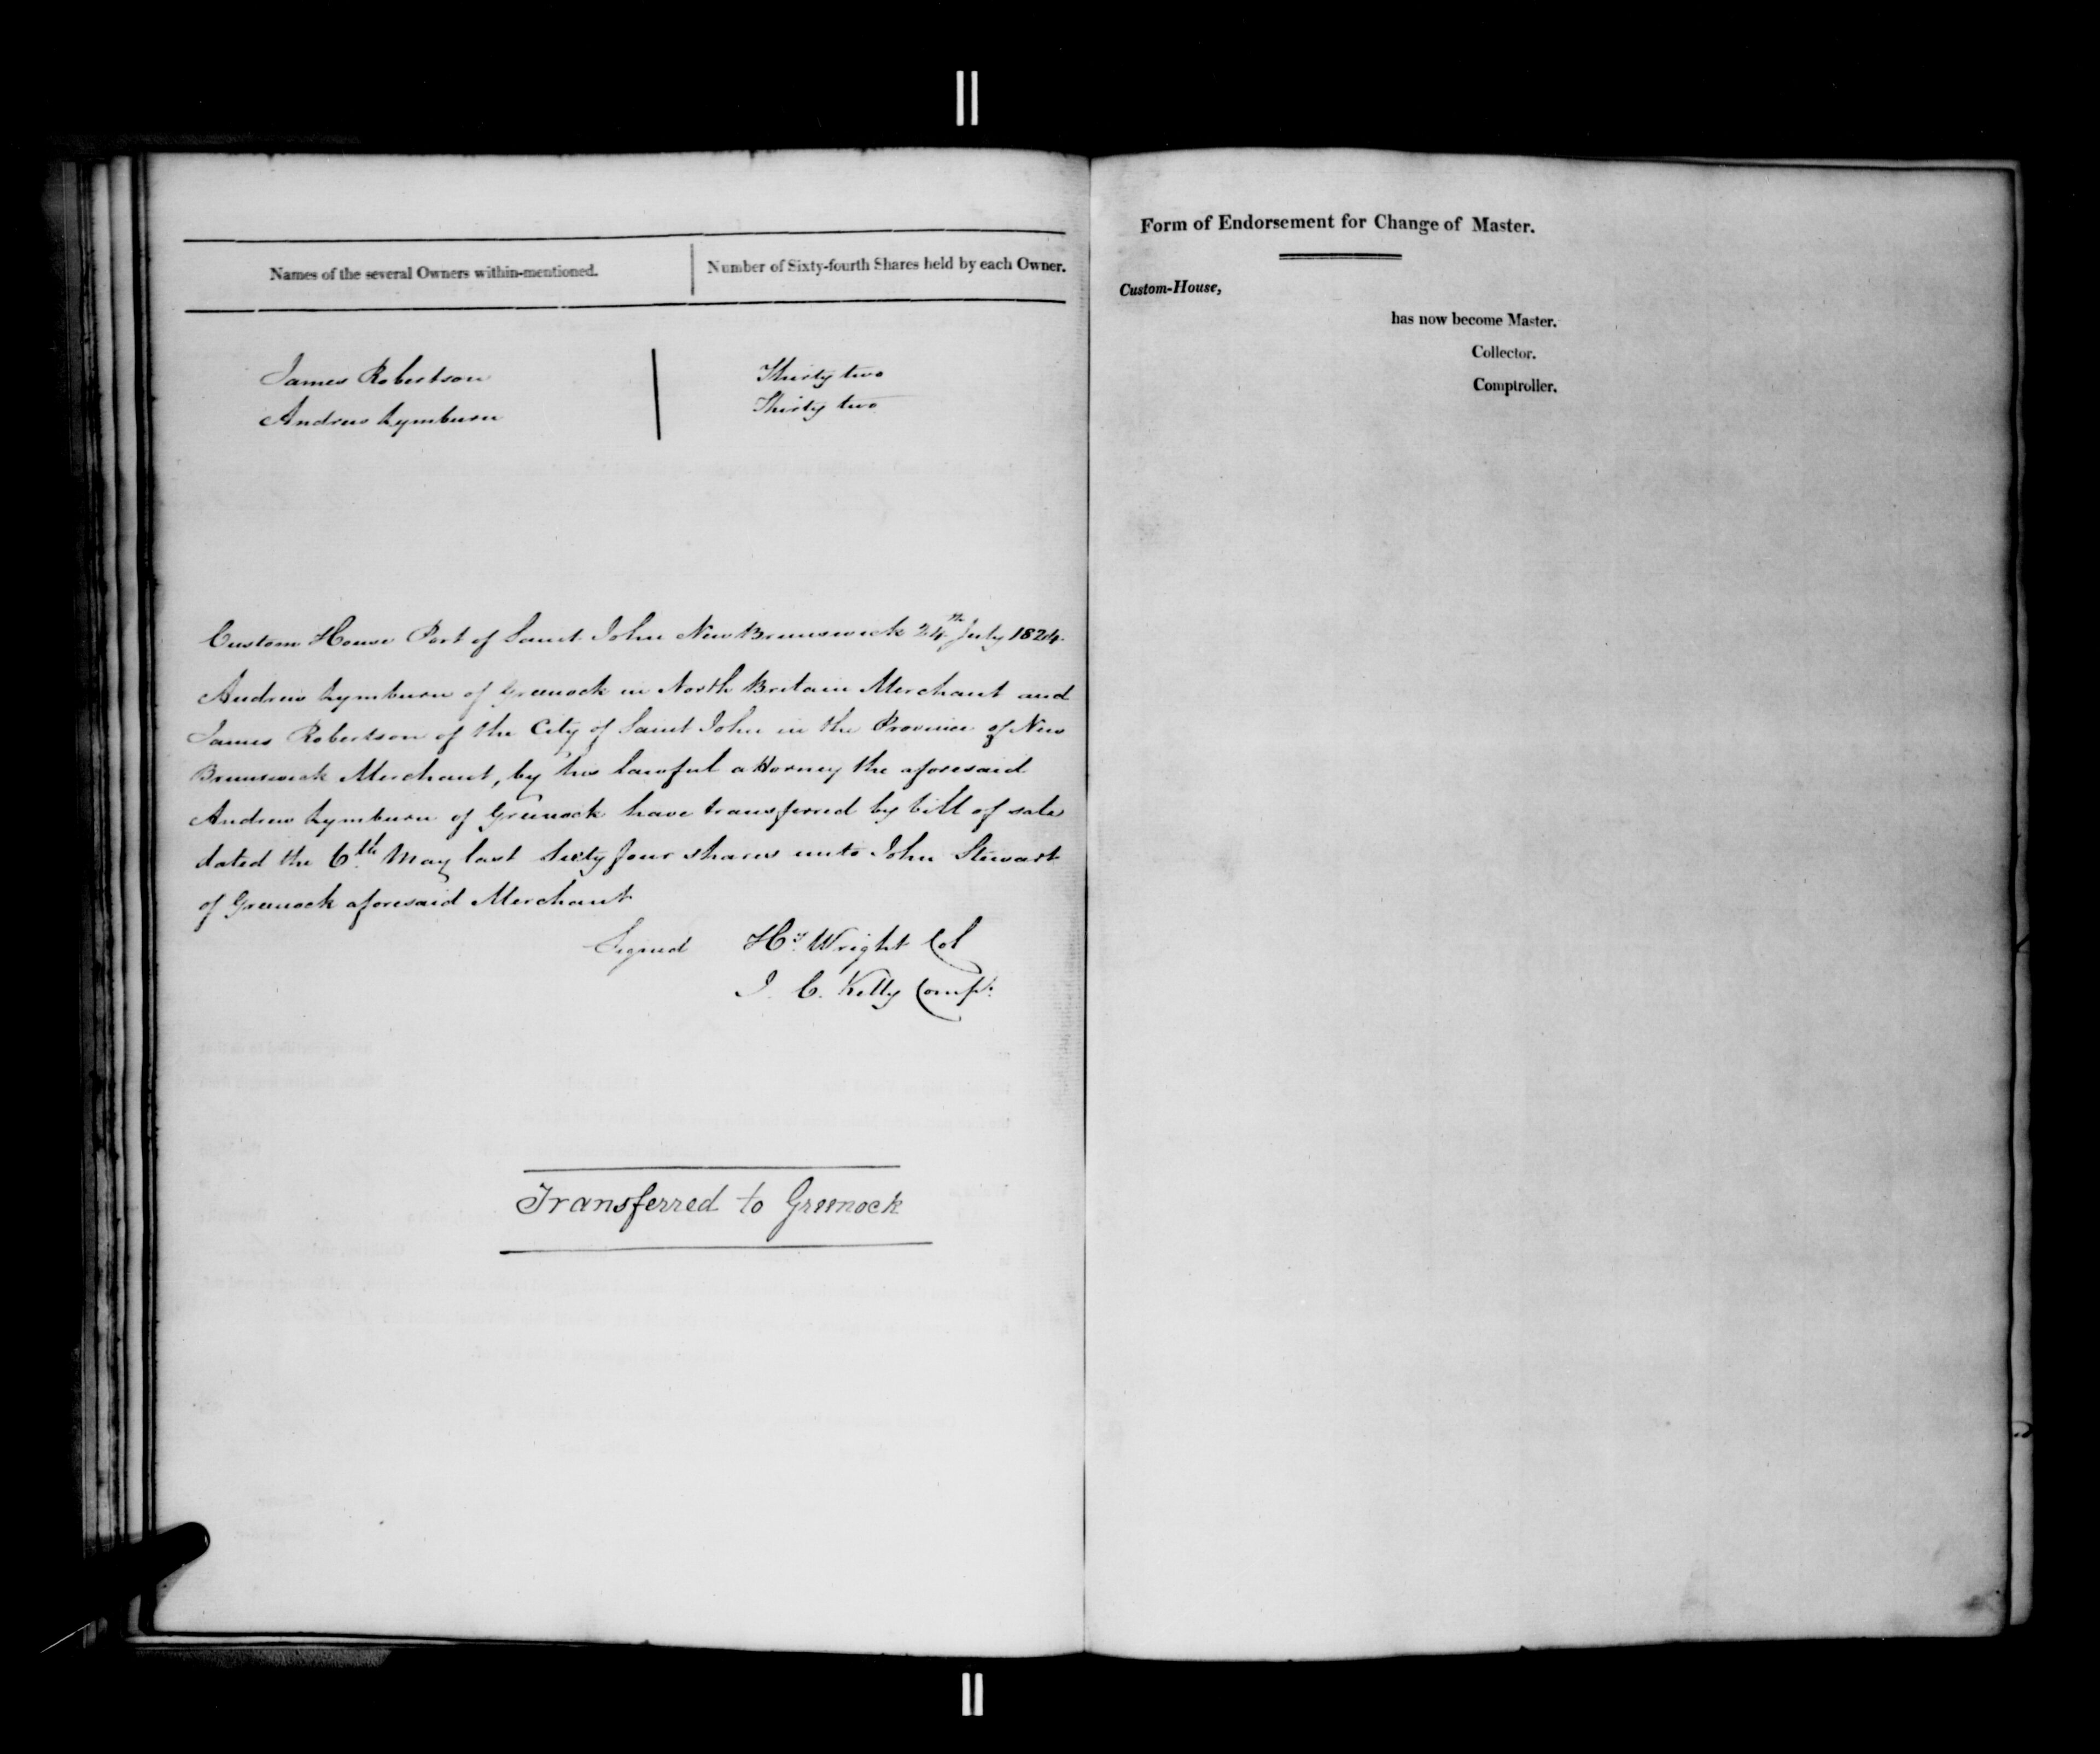 Names of the several Owners within-mentioned. Number of Sixty-fourth Shares held by each Owner.
James Robertson Thirty two
Andrew Lymburn Thirty two
Custom House Port of Saint John New Brunswick 24th July 1824
Andrew Lymburn of Greenock in North Britain Merchant and
James Robertson of the City of Saint John in the Province of New
Brunswick Merchant, by his lawful attorney the aforesaid
Andrew Lymburn of Greenock have transferred by bill of sale
dated the 6th May last Sixty four shares unto John Stewart
of Greenock aforesaid Merchant
Signed Hy. Wright Col
J. C. Kelly Compr.
Transferred to Greenock
Form of Endorsement for Change of Master.
Custom-House,
has now become Master.
Collector.
Comptroller.